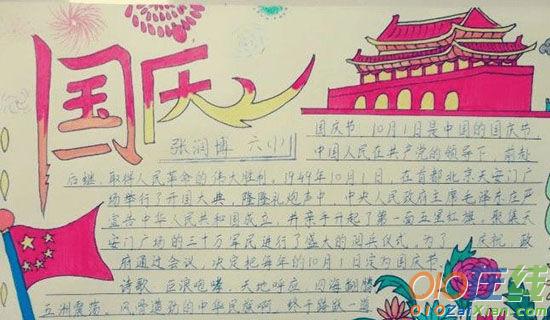 国庆
张润博 六(1)
国庆节 10月1日是中国的国庆节,
中国人民在共产党的领导下,前赴
后继,取得人民革命的伟大胜利,1949年10月1日,在首都北京天安门广
场举行了开国大典,隆隆礼炮声中,中央人民政府主席毛泽东庄严
宣告中华人民共和国成立,并亲手升起了第一面五星红旗,聚集天
安门广场的三十万军民进行了盛大的阅兵仪式,为了 庆祝,政
府通过会议,决定把每年的10月1日定为国庆节
诗歌:巨浪咆哮,天地呼应,四海翻腾
五洲震荡,风雷激动的中华民族啊 终于踏跃一
在线
ZaiXian.com